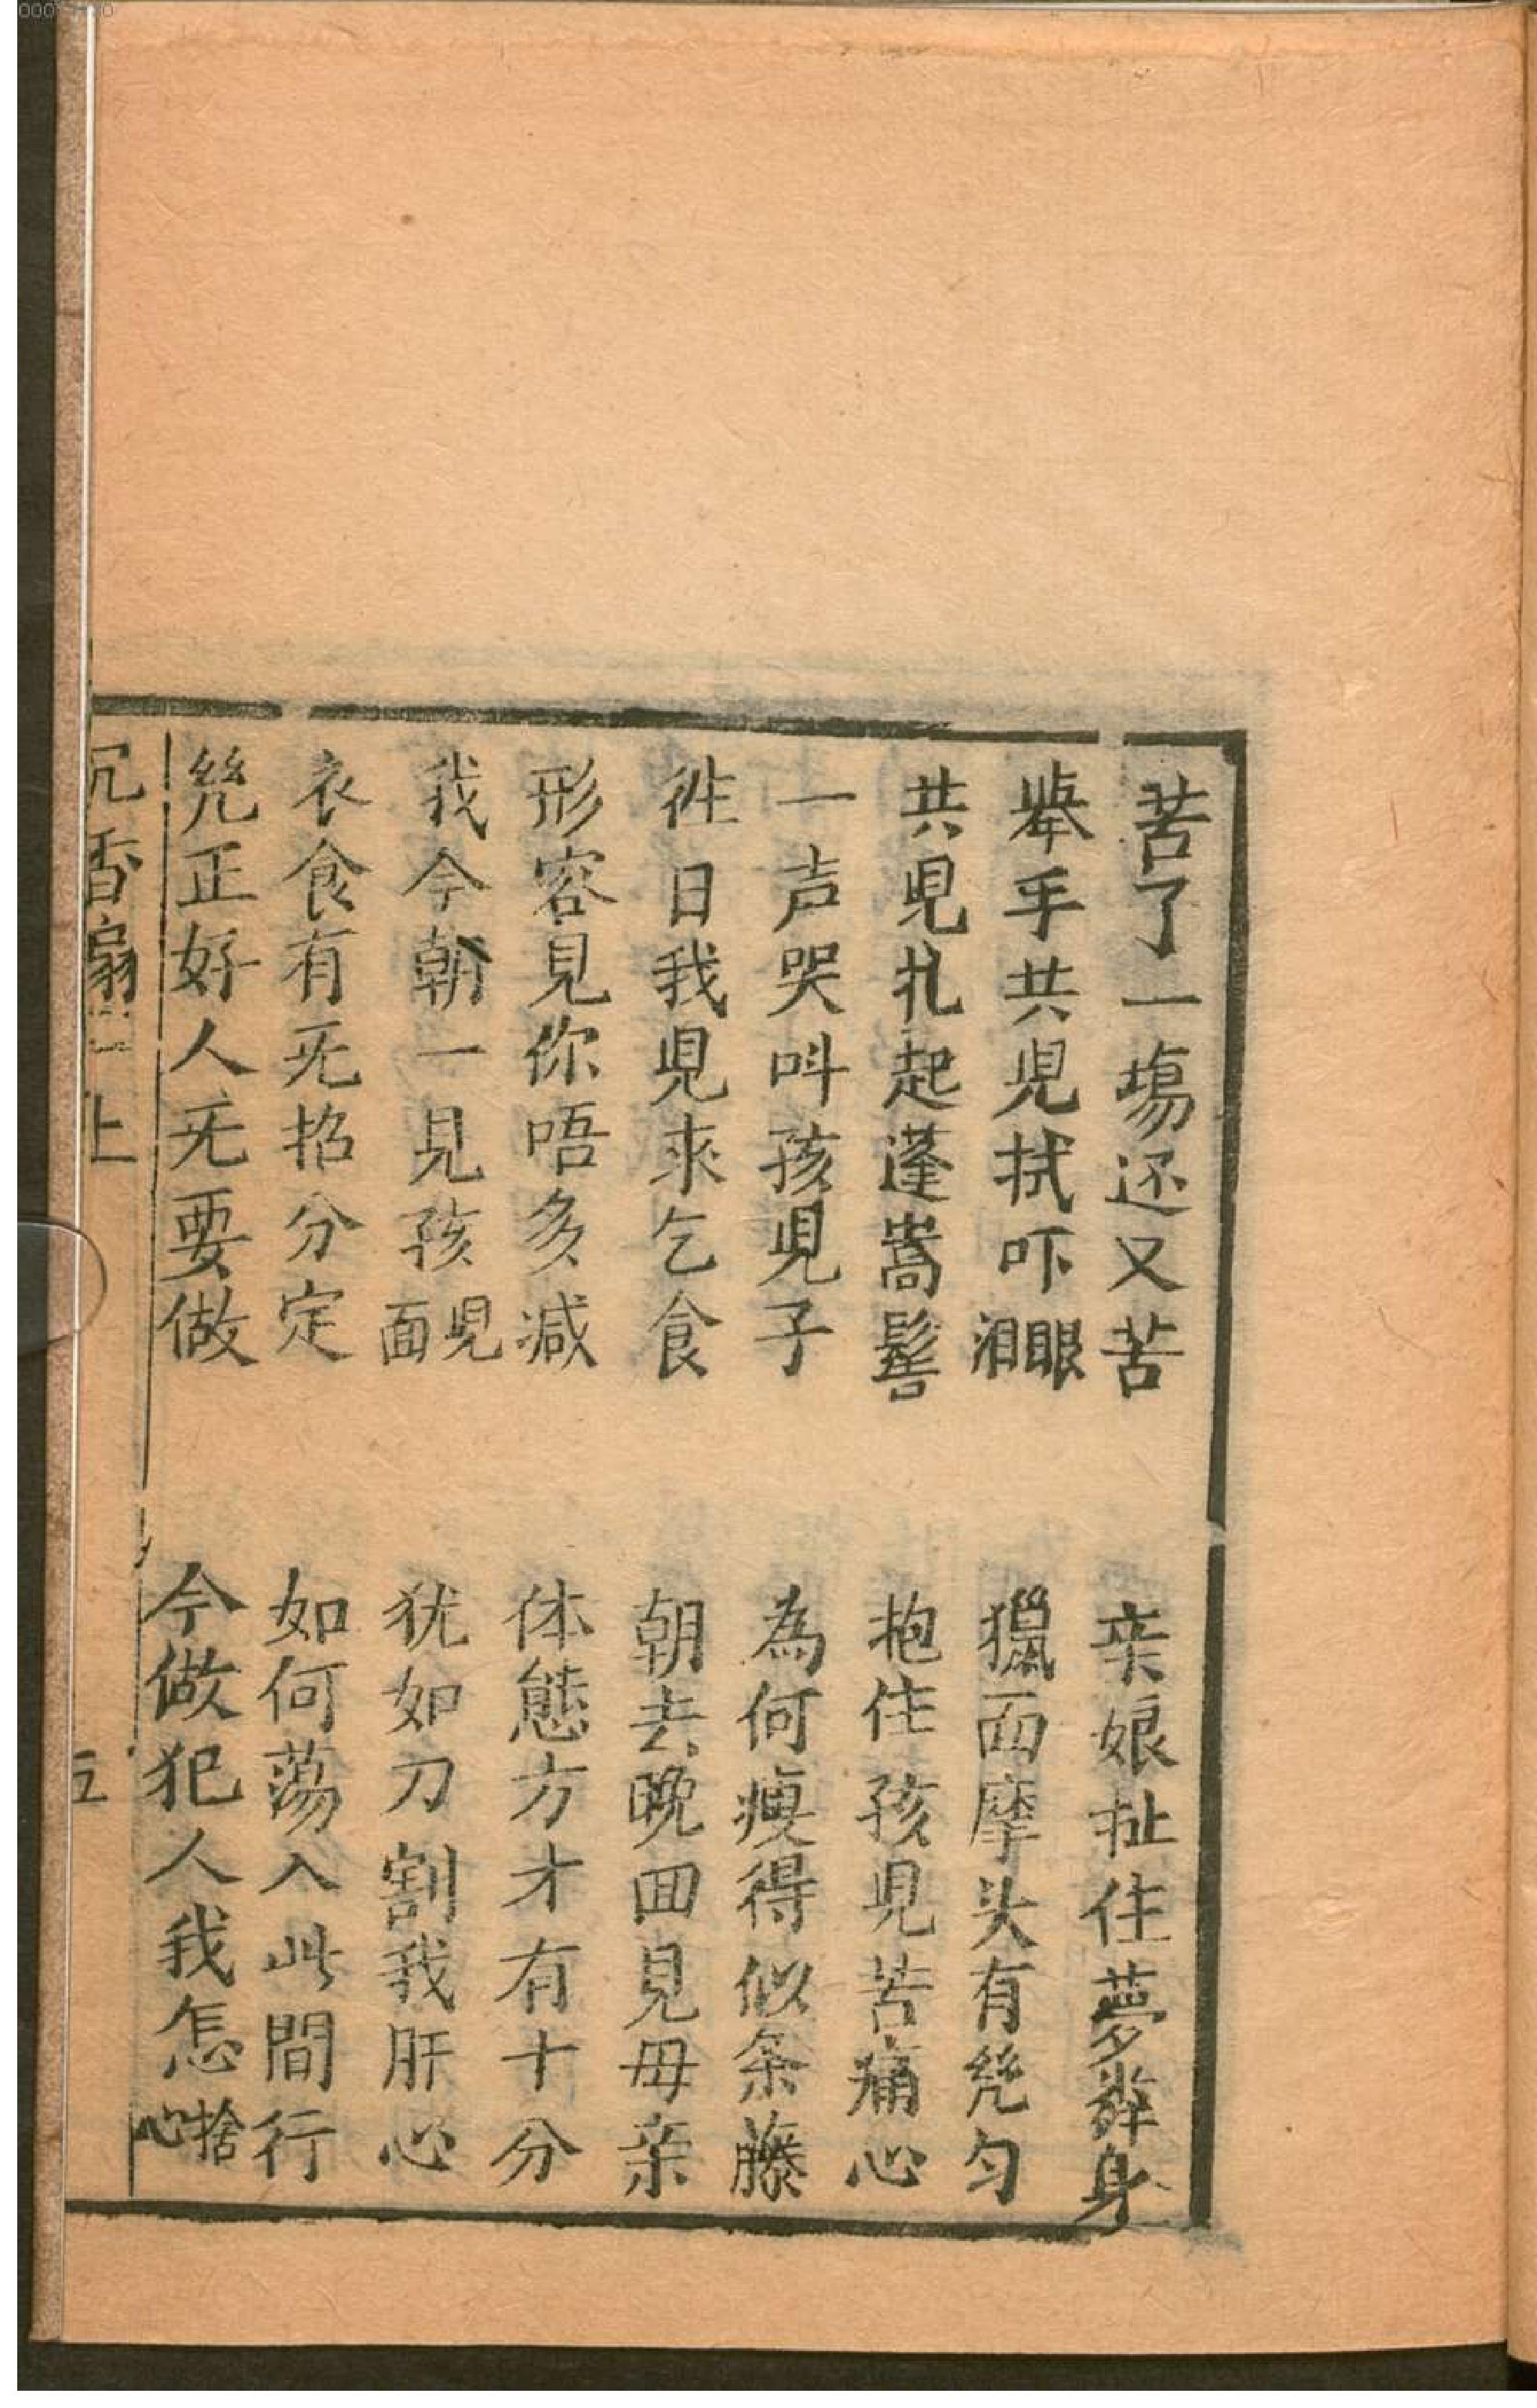 苦了一塲还又苦　亲娘扯住夢粦身
舉手共児拭吓眼泪　獵面摩头有凳匀
共児扎起蓬蒿髻　抱住孩児苦痛心
一声哭呌孩児子　為何瘦得似条藤
徃日我児來乞食　朝去晚囬見毋亲
形容見你唔多減　体態方才有十分
我今朝一見孩児面　犹如刀割我肝心
衣食有旡招分定　如何荡入此間行
凳正好人旡要做　今做犯人我怎捨心
沉香扇　上　五